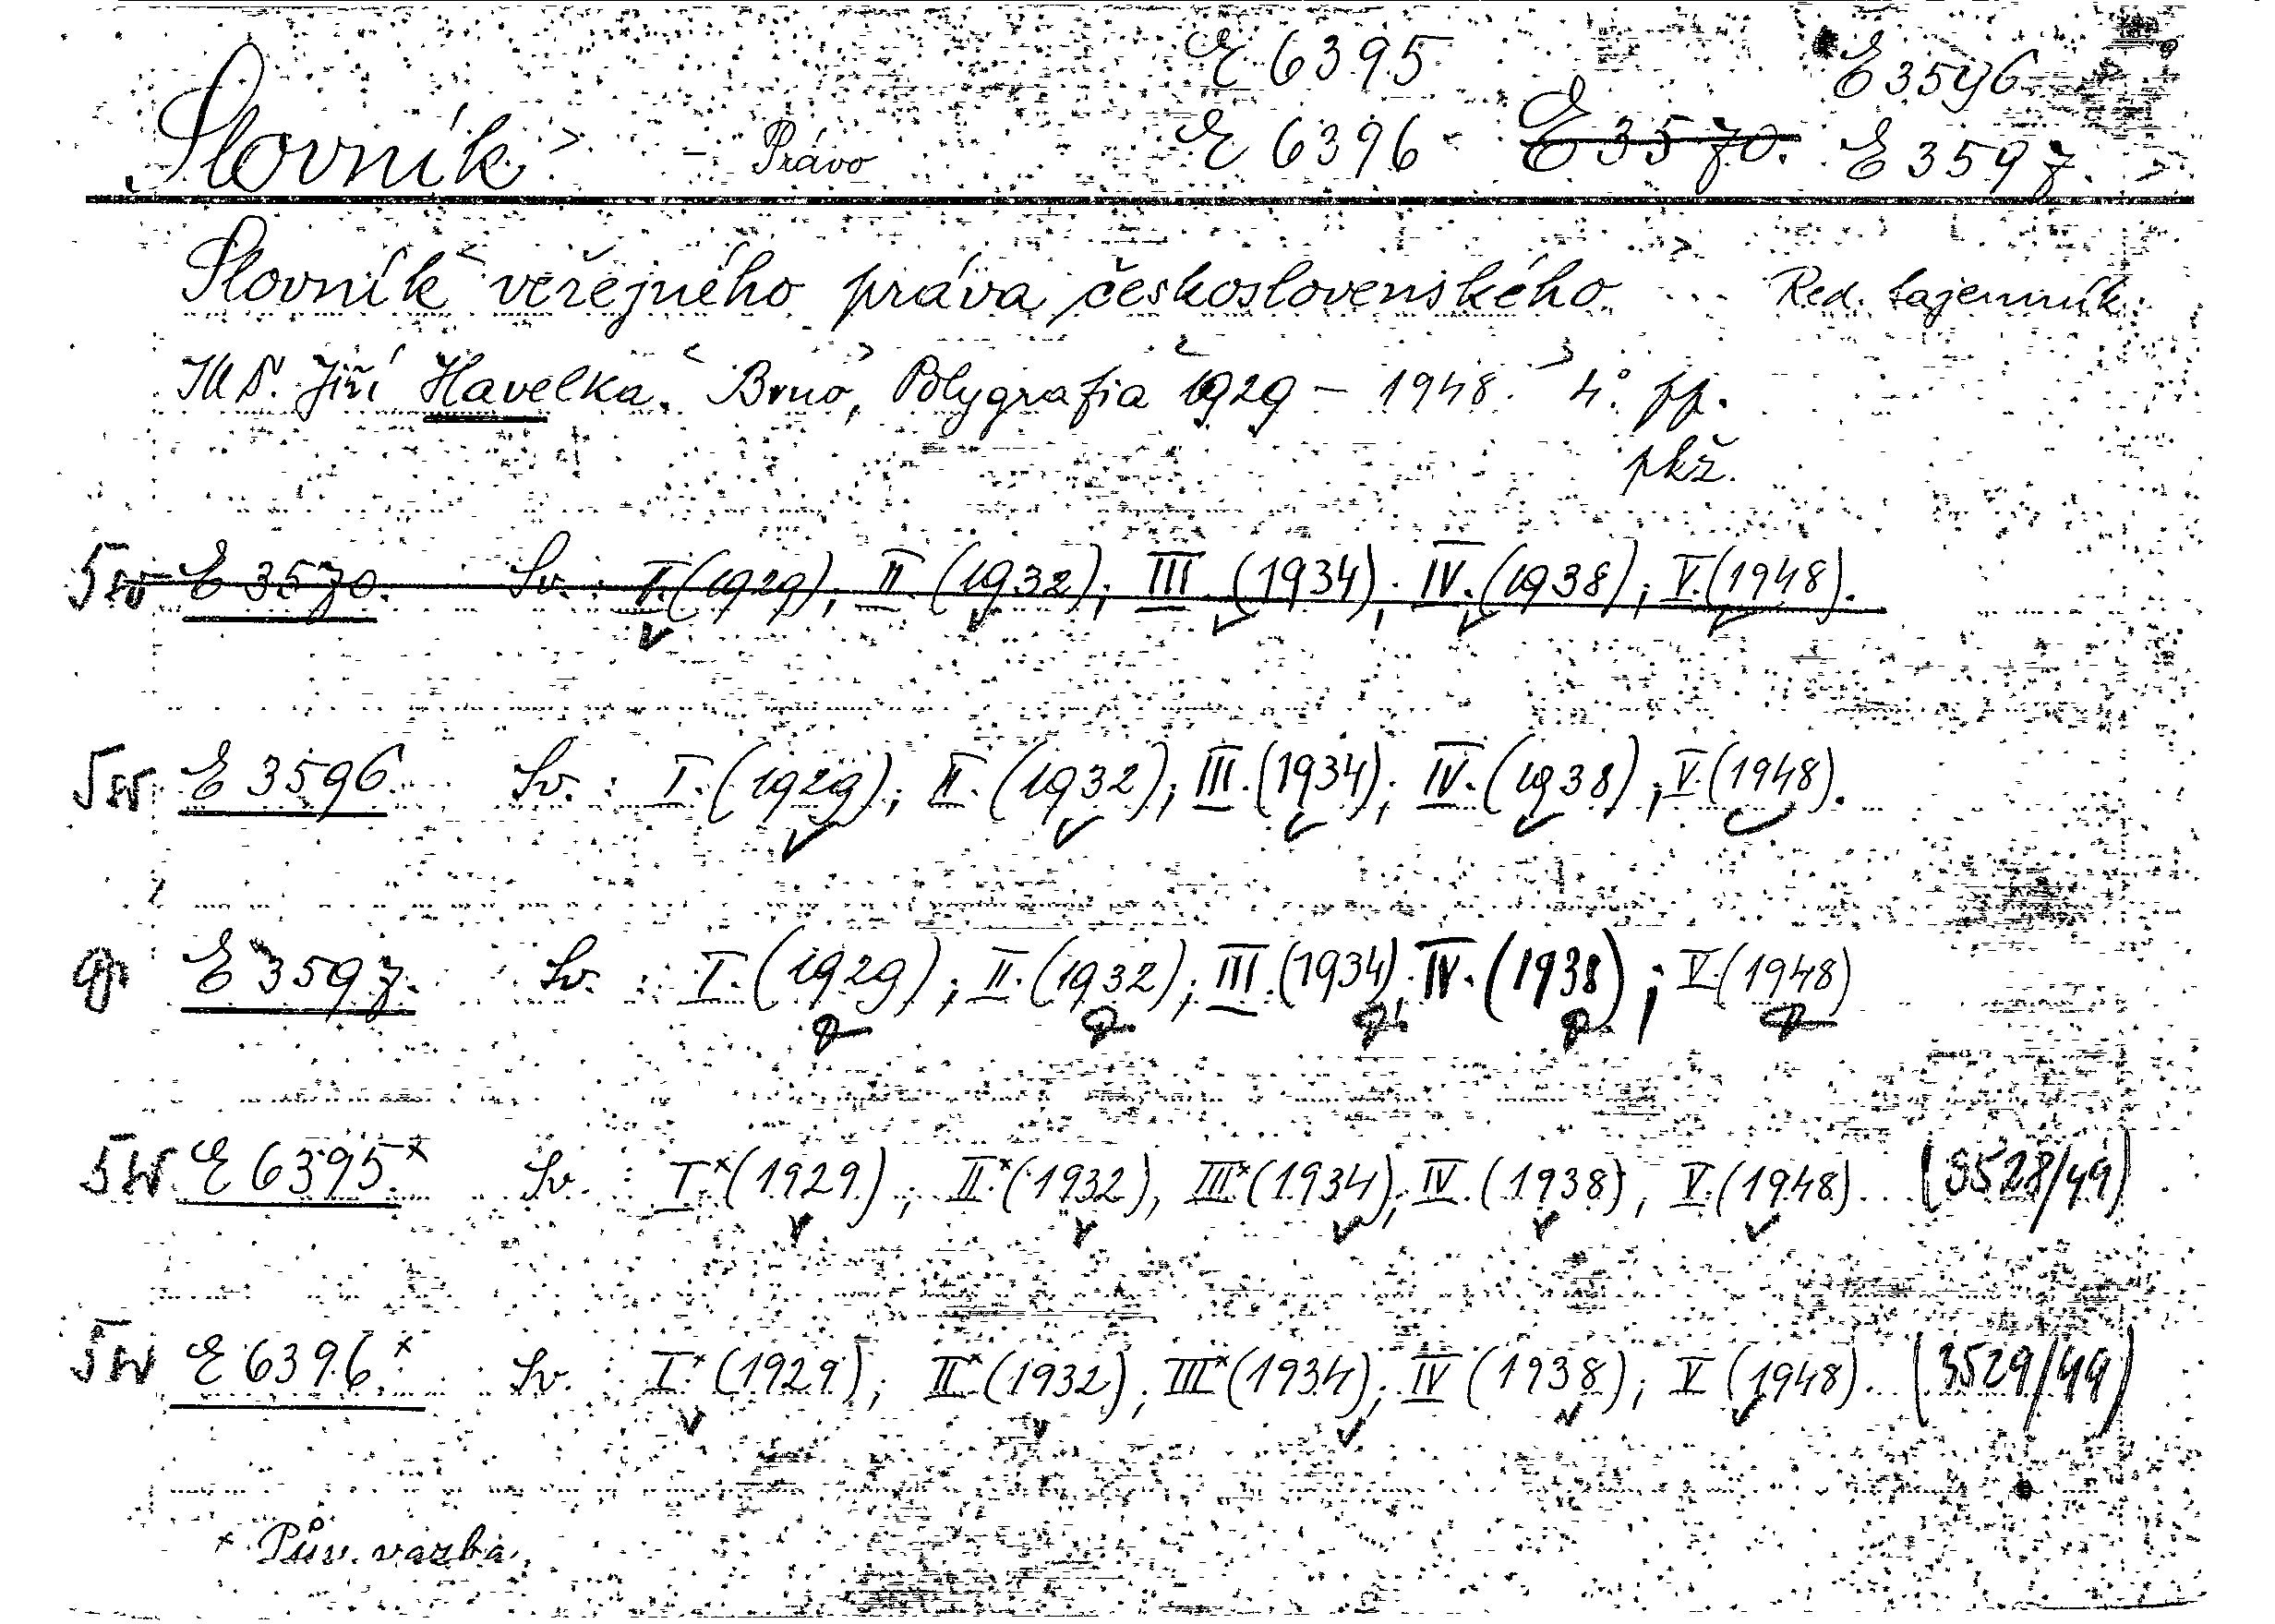 E 6395 E 3596
Slovník - Právo E 6396 E 3570. E 3597.
Slovník veřejného práva československého ... Red. tajemník
Jiří Havelka. Brno, Polygrafia 1929 – 1948. 4° pp.
pkž.
E 3570. Sv.: I. (1929); II. (1932); III. (1934); IV. (1938); V. (1948).
E 3596. Sv.: I. (1929); II. (1932); III. (1934); IV. (1938); V. (1948).
E 3597. Sv.: I. (1929); II. (1932); III. (1934); IV. (1938); V. (1948)
5 W E 6395.x Sv.: I.x (1929); II.x (1932), III.x (1934), IV. (1938), V. (1948). (3528/49)
5 W E 6396.x Sv.: I.x (1929); II.x (1932); III.x (1934); IV (1938); V (1948). (3529/49)
x Pův. vazba.